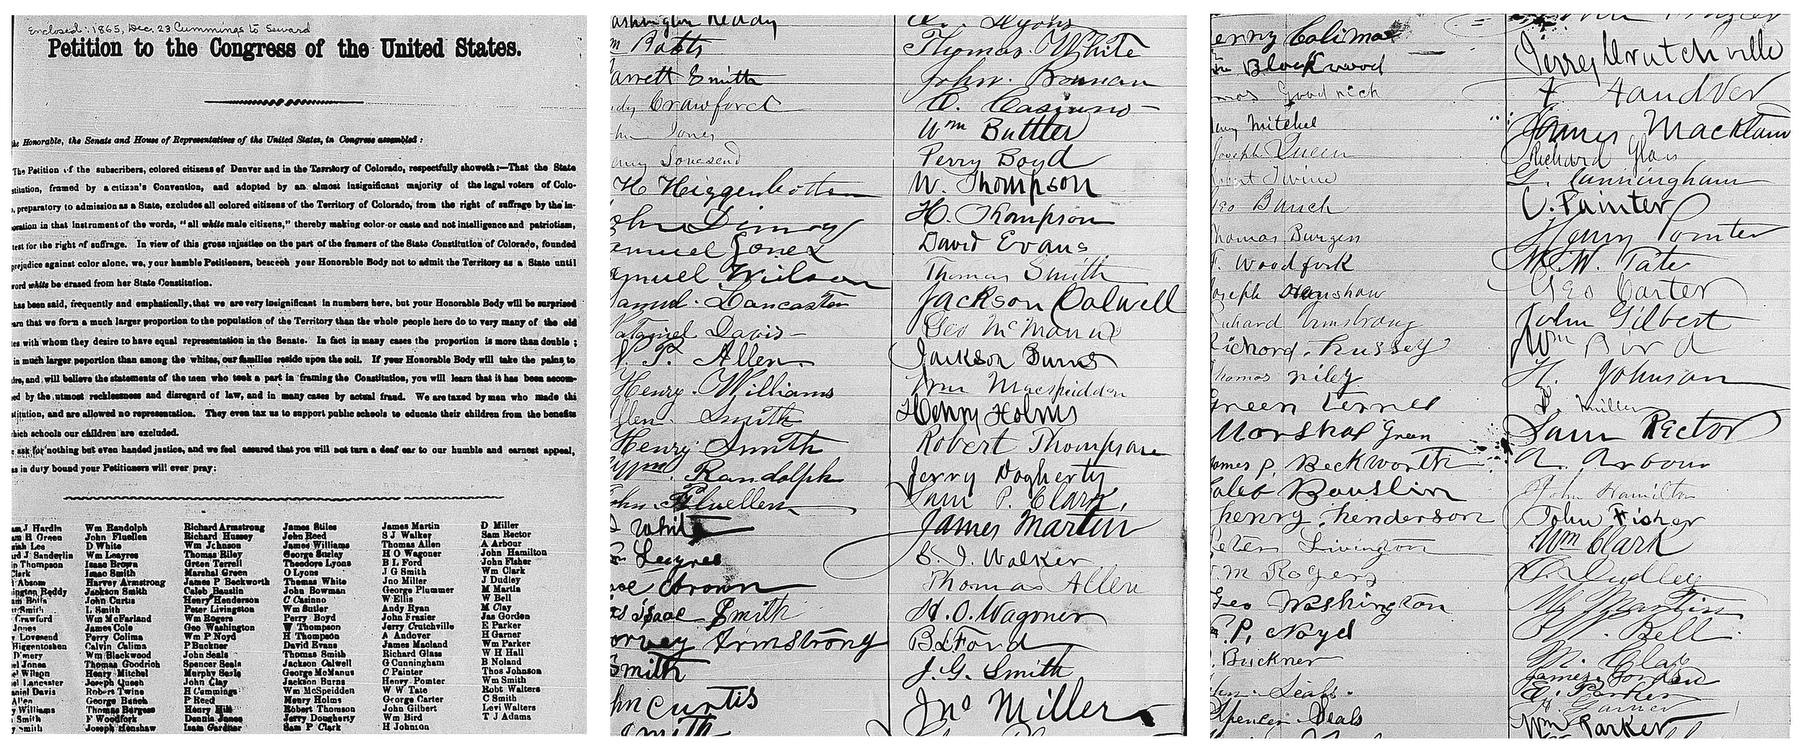 Enclosed: 1865, Dec. 23 Cummings to Seward
Petition to the Congress of the United States.
Honorable, the Senate and House of Representatives of the United States, in Congress assembled:
The Petition of the subscribers, colored citizens of Denver and in the Territory of Colorado, respectfully showeth:—That the State
stitution, framed by a citizen's Convention, and adopted by an almost insignificant majority of the legal voters of Colo-
, preparatory to admission as a State, excludes all colored citizens of the Territory of Colorado, from the right of suffrage by the in-
oration in that instrument of the words, "all white male citizens," thereby making color or caste and not intelligence and patriotism,
test for the right of suffrage. In view of this gross injustice on the part of the framers of the State Constitution of Colorado, founded
prejudice against color alone, we, your humble Petitioners, beseech your Honorable Body not to admit the Territory as a State until
word white be erased from her State Constitution.
has been said, frequently and emphatically, that we are very insignificant in numbers here, but your Honorable Body will be surprised
arn that we form a much larger proportion to the population of the Territory than the whole people here do to very many of the old
es with whom they desire to have equal representation in the Senate. In fact in many cases the proportion is more than double;
in much larger poportion than among the whites, our families reside upon the soil. If your Honorable Body will take the pains to
and will believe the statements of the men who took a part in framing the Constitution, you will learn that it has been accom-
ed by the utmost recklessness and disregard of law, and in many cases by actual fraud. We are taxed by men who made thi
stitution, and are allowed no representation. They even tax us to support public schools to educate their children from the benefits
hich schools our children are excluded.
ask for nothing but even handed justice, and we feel assured that you will not turn a deaf ear to our humble and earnest appeal,
as in duty bound your Petitioners will ever pray:
J Hardin
H Green
Lee
J Sanderlin
Thompson
Clark
Absom
ington Reddy
Smith
Crawford
Jones
Lovesend
Higgentoshen
Jones
Wilson
Lancaster
Davis
Allen
Williams
Smith
Smith
Wm Randolph
John Fluellen
D White
Wm Leayres
Isaac Brown
Isaac Smith
Harvey Armstrong
Jackson Smith
John Curtis
L Smith
Wm McFarland
James Cole
Perry Colima
Calvin Calima
Wm Blackwood
Thomas Goodrich
Henry Mitchel
Joseph Queen
Robert Twine
George Bunch
Thomas Burgess
F Woodfork
Joseph Henshaw
Richard Armstrong
Richard Hussey
Wm Johnson
Thomas Riley
Green Terrell
Marshal Green
James P Beckworth
Caleb Bauslin
Henry Henderson
Peter Livingston
Wm Rogers
Geo Washington
Wm P Noyd
P Buckner
John Seals
Spencer Seals
Murphy Seals
John Clay
H Cummings
P Reed
Henry Hill
Dennis Jones
Isam Gardner
James Stiles
John Reed
James Williams
George Surley
Theodore Lyons
O Lyons
Thomas White
John Bowman
C Casinno
Wm Butler
Perry Boyd
W Thompson
H Thompson
David Evans
Thomas Smith
Jackson Calwell
George McManus
Jackson Burns
Wm McSpeidden
Henry Holms
Robert Thomson
Jerry Dougherty
Sam P Clark
James Martin
S J Walker
Thomas Allen
H O Wagoner
B L Ford
J G Smith
Jno Miller
George Plummer
W Ellis
Andy Ryan
John Frazier
Jerry Crutchville
A Andover
James Macland
Richard Glass
G Cunningham
C Painter
Henry Pomter
W W Tate
George Carter
John Gilbert
Wm Bird
H Johnson
D Miller
Sam Rector
A Arbour
John Hamilton
John Fisher
Wm Clark
J Dudley
M Martin
W Bell
M Clay
Jas Gorden
E Parker
H Garner
Wm Parker
W H Hall
B Noland
Thos Johnson
Wm Smith
Robt Walters
C Smith
Levi Walters
T J Adams
ashington Reddy
m Batts
arrett Smith
Crawford
Jones
H Higgenbotten
Samuel Jones
amuel Wilson
Lancaster
Davis
Allen
Henry Williams
Smith
Henry Smith
Wm. Randolph
John Fluellen
White
Brown
Isaac Smith
arvey Armstrong
Smith
hn Curtis
Smith
Lyons
Thomas White
John Bowman
C. Casinno
Wm Buttler
Perry Boyd
W. Thompson
H. Thompson
David Evans
Thomas Smith
Jackson Calwell
Geo McManus
Jackson Burns
Wm Macspeidden
Henry Holms
Robert Thompson
Jerry Dogherty
Sam P. Clark,
James Martin
S. J. Walker
Thomas Allen
H. O. Wagoner
B L Ford
J. G. Smith
Jno Miller
erry Colima
Blackwood
Goodrich
Mitchel
Joseph Queen
Twine
Geo Bunch
Thomas Burgess
Woodfork
Joseph Henshaw
Richard Armstrong
Richard. Hussey
Thomas Riley
Green Terrel
Marshal Green
James P. Beckworth
Caleb Bauslin
henry. henderson
Peter Livington
Rogers
Geo Washington
P. Noyd
Buckner
Seals.
Spencer Seals
Jerrey Crutchville
A Handver
James Mackland
Richard Glass
G. Cunningham
C. Painter
Henry Pomter
W. W. Tate
Geo Carter
John Gilbert
Wm Bird
H. Johnson
D Miller
Sam Rector
A. Arbour
John Hamilton
John Fisher
Wm Clark
Dudley
M. Martin
W. Bell
M. Clay
James Jordan
E. Parker
H. Garner
Wm Parker